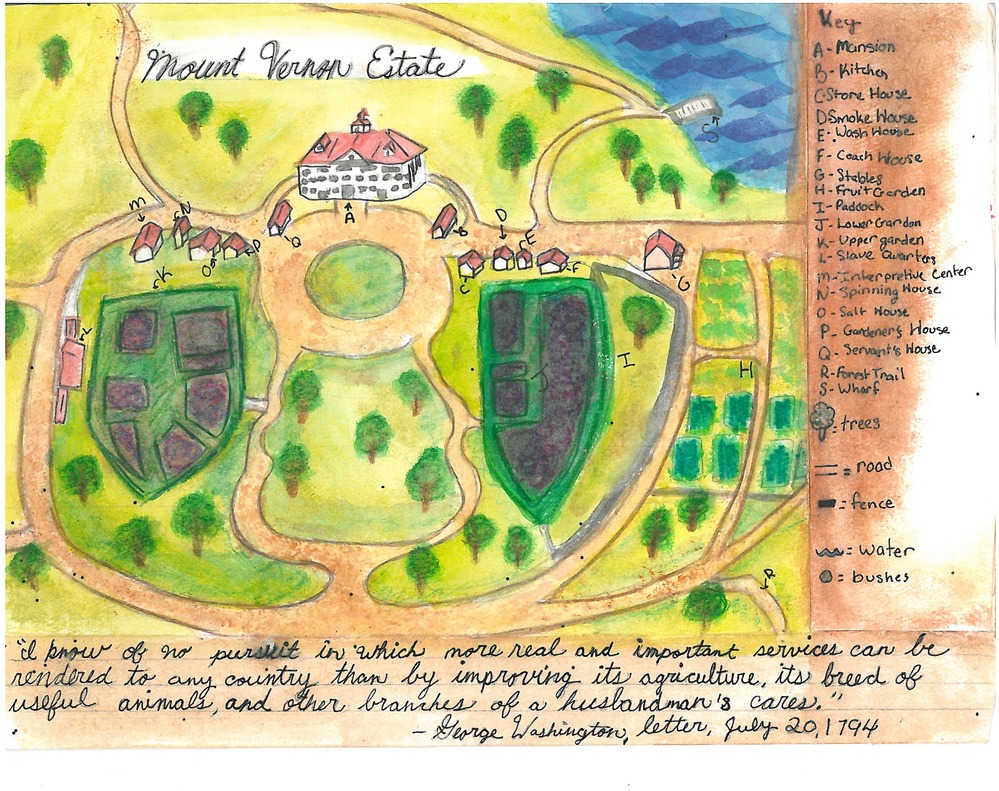 Mount Vernon Estate
Key
A - Mansion
B - Kitchen
C Store House
D Smoke House
E - Wash House
F - Coach House
G - Stables
H - Fruit Garden
I - Paddock
J - Lower Garden
K - Upper garden
L - Slave Quarters
M - Interpretive Center
N - Spinning House
O - Salt House
P - Gardener's House
Q - Servant's House
R - Forest Trail
S - Wharf
: trees
= road
= fence
= water
= bushes
S
M
N
A
Q
O
P
B
D
E
C
F
G
K
L
I
J
H
R
"I know of no pursuit in which more real and important services can be
rendered to any country than by improving its agriculture, its breed of
useful animals, and other branches of a husbandman's cares."
- George Washington, letter, July 20, 1794